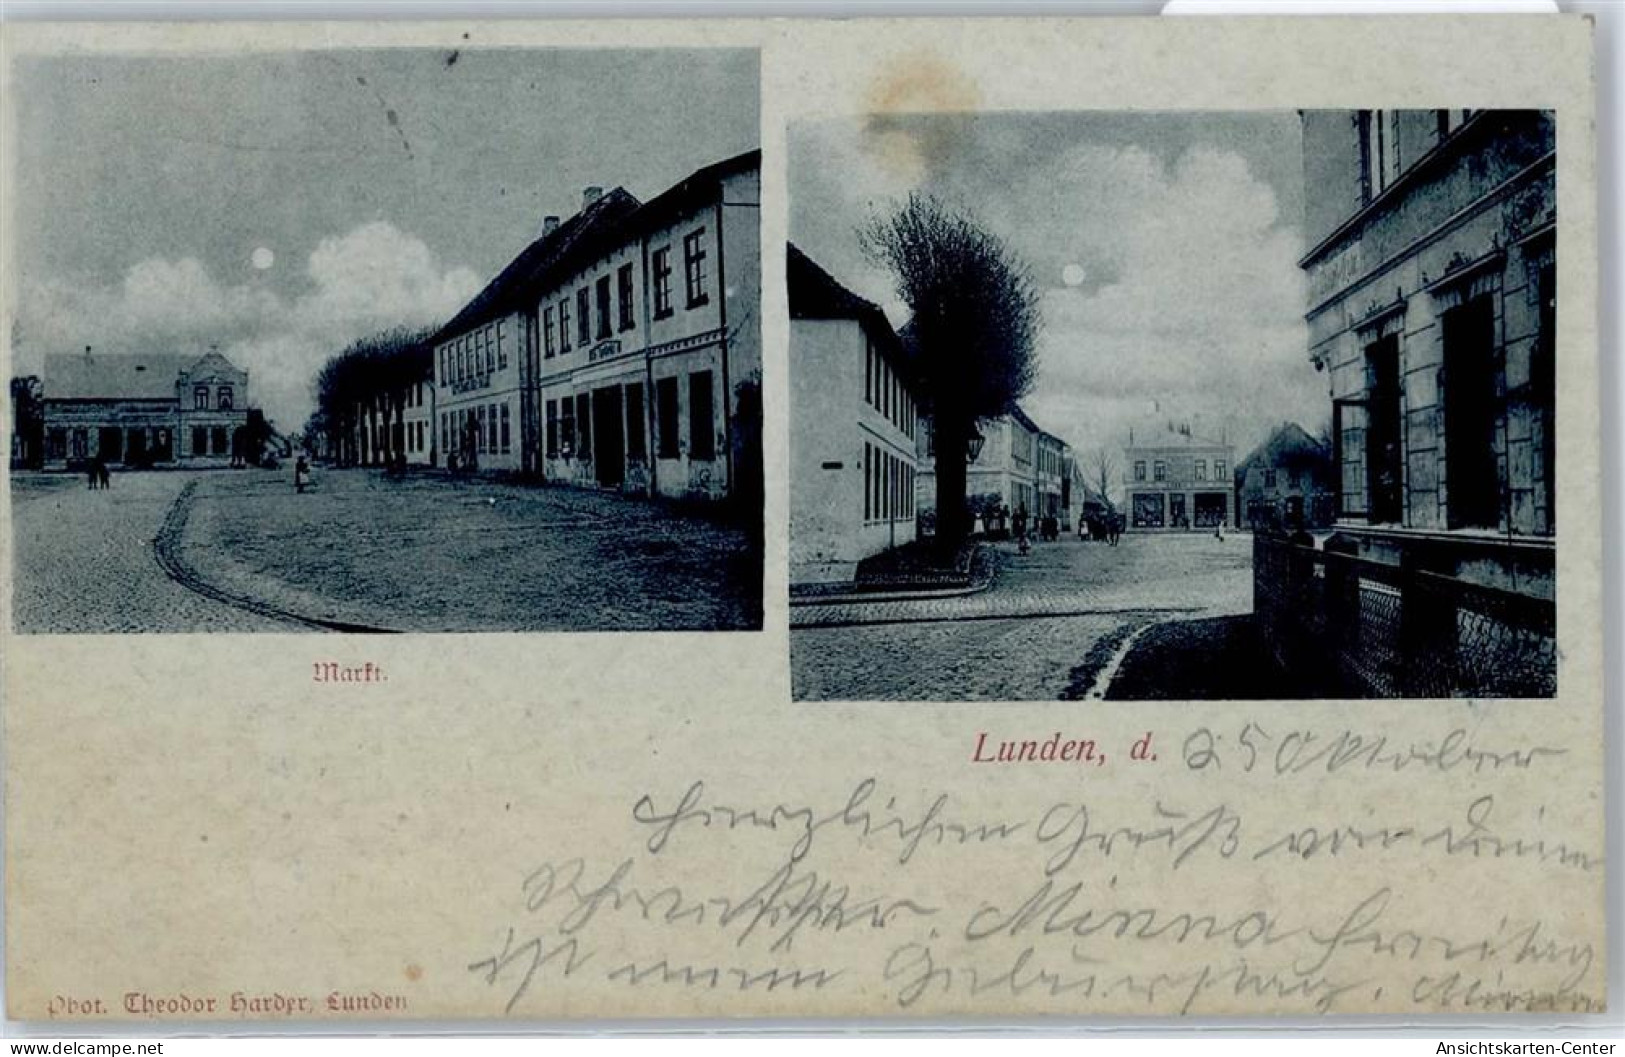 Markt.
Lunden, d. 25 Oktober
Herzlichen Gruß von deine
Schwester. Minna Freitag
ist mein Geburtstag. Minna
Phot. Theodor Harder, Lunden
delcampe.net
Ansichtskarten-Center